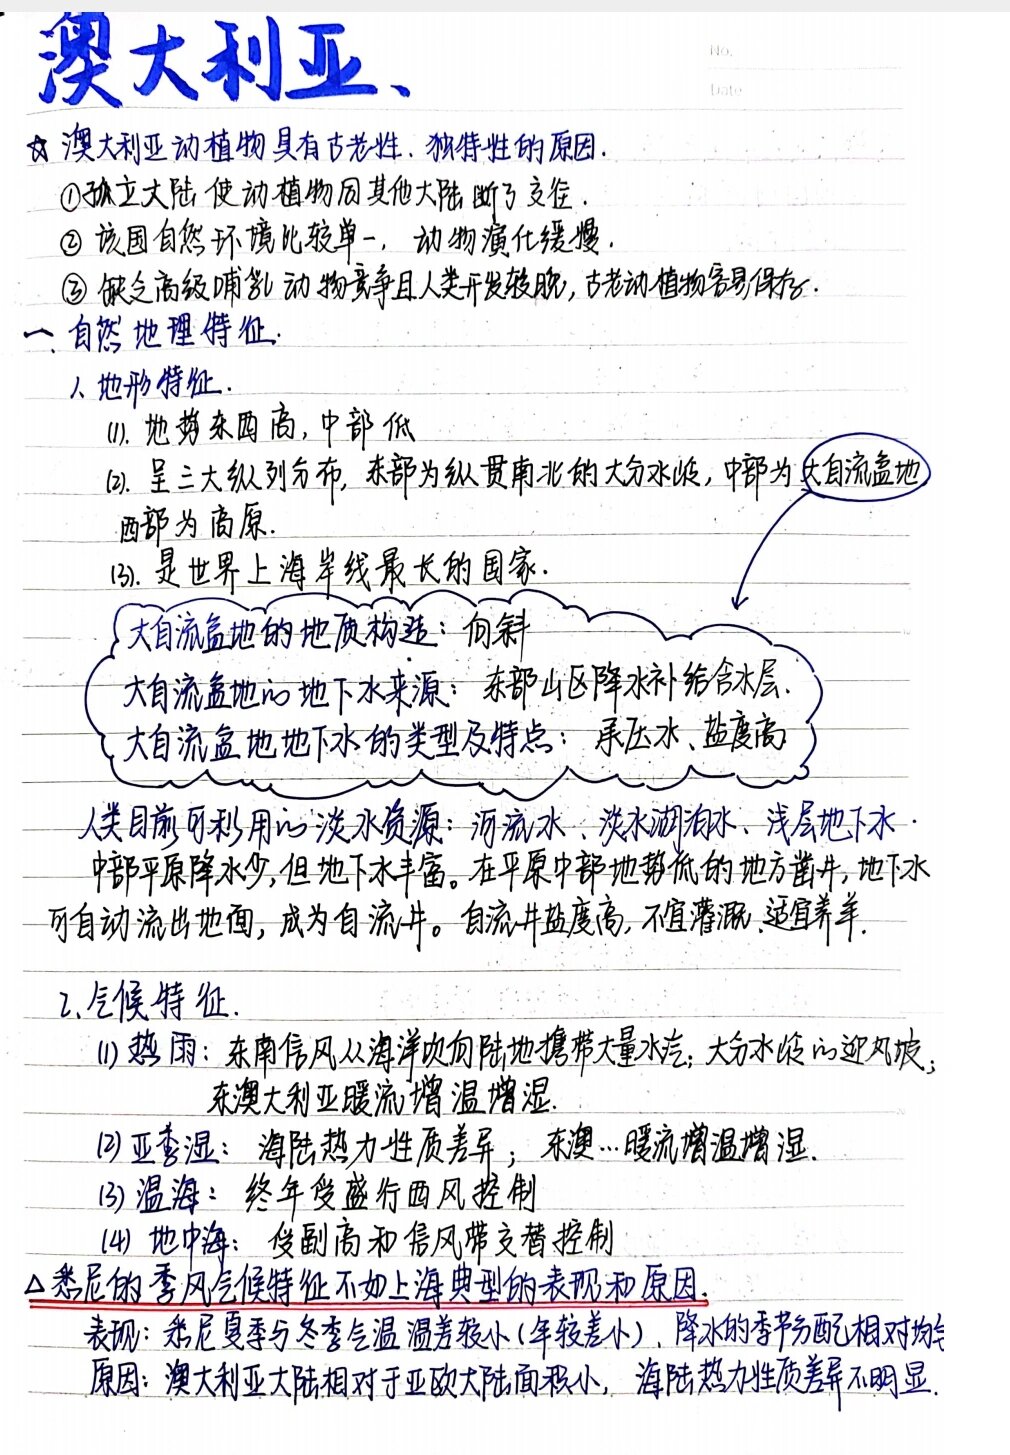 澳大利亚、
No.
Date
☆ 澳大利亚动植物具有古老性、独特性的原因.
①孤立大陆使动植物因其他大陆断了交往.
② 该国自然环境比较单一，动物演化缓慢.
③ 缺乏高级哺乳动物竞争且人类开发较晚，古老动植物容易保存.
一、自然地理特征.
1、地形特征.
(1). 地势东西高，中部低
(2). 呈三大纵列分布，东部为纵贯南北的大分水岭，中部为大自流盆地
西部为高原.
(3). 是世界上海岸线最长的国家.
大自流盆地的地质构造：向斜
大自流盆地的地下水来源：东部山区降水补给含水层.
大自流盆地地下水的类型及特点：承压水、盐度高
人类目前可利用的淡水资源：河流水、淡水湖泊水、浅层地下水.
中部平原降水少，但地下水丰富。在平原中部地势低的地方凿井，地下水
可自动流出地面，成为自流井。自流井盐度高，不宜灌溉、适宜养羊.
2、气候特征.
(1) 热雨：东南信风从海洋吹向陆地携带大量水汽；大分水岭的迎风坡；
东澳大利亚暖流增温增湿.
(2) 亚季湿：海陆热力性质差异；东澳…暖流增温增湿.
(3) 温海：终年受盛行西风控制
(4) 地中海：受副高和信风带交替控制
△悉尼的季风气候特征不如上海典型的表现和原因.
表现：悉尼夏季与冬季气温温差较小（年较差小）、降水的季节分配相对均匀
原因：澳大利亚大陆相对于亚欧大陆面积小，海陆热力性质差异不明显.